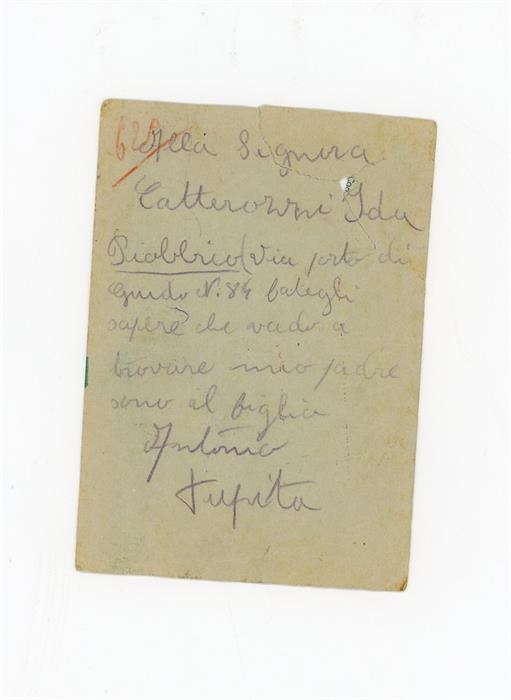 Alla Signora
Catterozzi Ida
Piobbico (via porto di
Guido N. 84 fategli
sapere che vado a
trovare mio padre
sono il figlio
Antonio